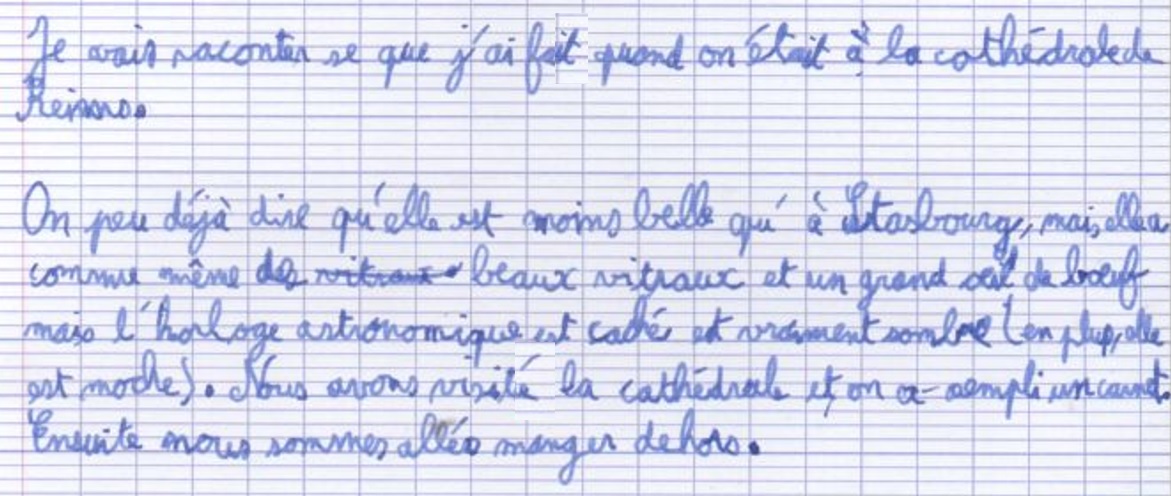 Je vais raconter se que j'ai fait quand on était à la cathédrale de
Reims.
On peu déjà dire qu'elle est moins belle qu'à Stasbourg, mais elle a
comme même des vitraux beaux vitraux et un grand œil de bœuf
mais l'horloge astronomique est caché et vraiment sombre (en plus, elle
est moche). Nous avons visité la cathédrale et on a rempli un carnet.
Ensuite nous sommes allés manger dehors.